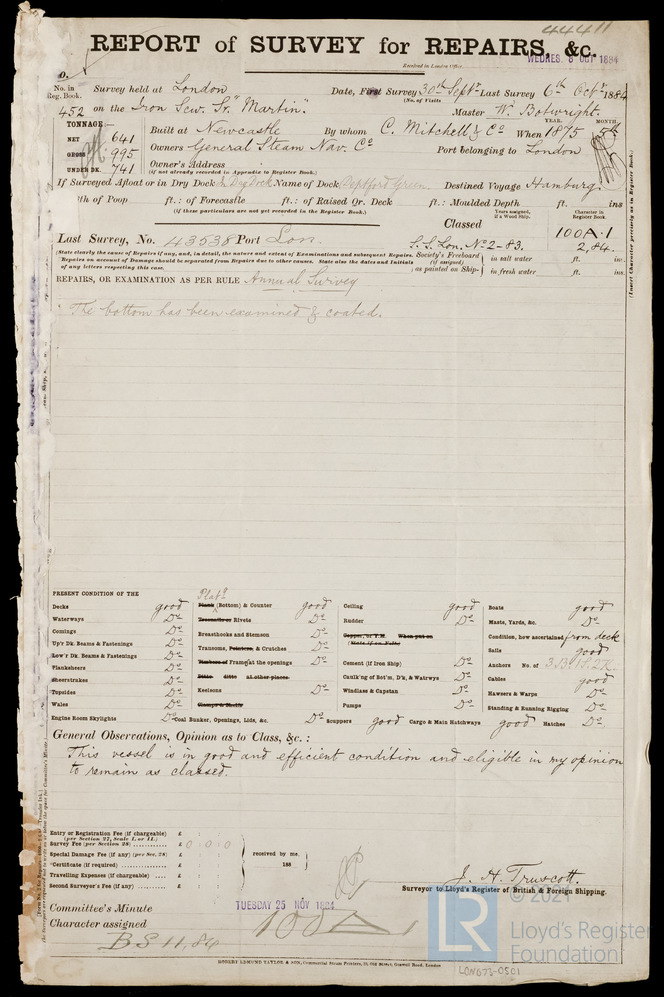 44411
REPORT of SURVEY for REPAIRS, &c.
Received in London Office.
WEDNES. 8 OCT 1884
No. in Reg. Book.
Survey held at London
Date, First Survey 30th Septr Last Survey 6th Octr 1884
(No. of Visits
452 on the Iron Scw. Sr. "Martin".
Master W. Botwright.
TONNAGE:—
NET 641
GROSS 995
UNDER DK. 741
Built at Newcastle By whom C. Mitchell & Co When 1875
YEAR. MONTH
Owners General Steam Nav. Co
Port belonging to London
Owner's Address
(if not already recorded in Appendix to Register Book.)
If Surveyed Afloat or in Dry Dock In Dry Dock Name of Dock Deptford Green Destined Voyage Hamburg.
th of Poop ft.: of Forecastle ft.: of Raised Qr. Deck ft.: Moulded Depth ft. ins
(if these particulars are not yet recorded in the Register Book.)
Classed
Years assigned, if a Wood Ship.
Character in Register Book.
100A.1
2,84.
Last Survey, No. 43538 Port Lon.
S.S. Lon. No 2-83.
(State clearly the cause of Repairs if any, and, in detail, the nature and extent of Examinations and subsequent Repairs.
Repairs on account of Damage should be separated from Repairs due to other causes. State also the dates and Initials
of any letters respecting this case.
Society's Freeboard (if assigned) as painted on Ship- in salt water ft. ins.
in fresh water ft. ins.
REPAIRS, OR EXAMINATION AS PER RULE Annual Survey
The bottom has been examined & coated.
PRESENT CONDITION OF THE
Decks good
Waterways Do
Comings Do
Up'r Dk. Beams & Fastenings Do
Low'r Dk. Beams & Fastenings Do
Planksheers Do
Sheerstrakes Do
Topsides Do
Wales Do
Engine Room Skylights Do
Platg
Plank (Bottom) & Counter good
Treenails or Rivets Do
Breasthooks and Stemson Do
Transoms, Pointers, & Crutches Do
Timbers of Frame at the openings Do
Ditto ditto at other places
Keelsons Do
Clamps & Shelfs
Coal Bunker, Openings, Lids, &c. Do
Ceiling good
Rudder Do
Copper, or Y.M. When put on
Cement (if Iron Ship) Do
Caulk'ng of Bot'm, D'k, & Watrwys Do
Windlass & Capstan Do
Pumps Do
Scuppers good
Cargo & Main Hatchways good
Boats good
Masts, Yards, &c. Do
Condition, how ascertained from deck
Sails good
Anchors No. of 3.B. 1S. 2K.
Cables good
Hawsers & Warps Do
Standing & Running Rigging Do
Hatches Do
General Observations, Opinion as to Class, &c.:
This vessel is in good and efficient condition and eligible in my opinion
to remain as classed.
Entry or Registration Fee (if chargeable) £
(per Section 27, Scale 1, or 11.)
Survey Fee (per Section 28) £ 0 . 0 . 0
Special Damage Fee (if any) (per Sec. 28) £
Certificate (if required) £
Travelling Expenses (if chargeable) £
Second Surveyor's Fee (if any) £
received by me,
188
J. H. Truscott.
Surveyor to Lloyd's Register of British & Foreign Shipping.
Committee's Minute
TUESDAY 25 NOV 1884
Character assigned 100A1
B S 11, 84
ROBERT EDMUND TAYLOR & SON, Commercial Steam Printers, 19, Old Street, Goswell Road, London
LON673-0501
© 2021
LR
Lloyd's Register
Foundation
(Insert Character precisely as in Register Book.)